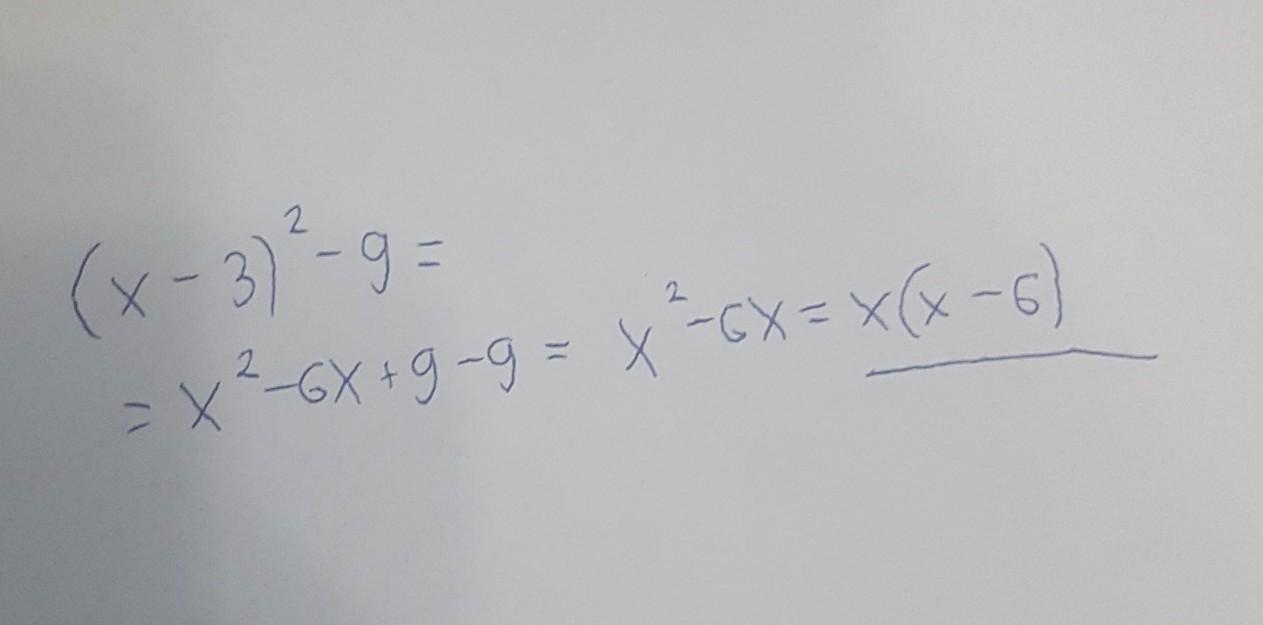 (x - 3)² - 9 =
= x² - 6x + 9 - 9 = x² - 6x = x(x - 6)